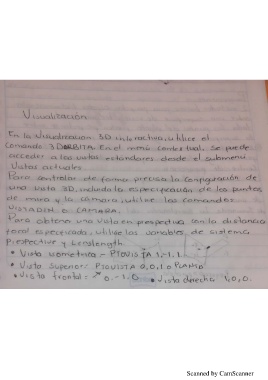 Visualización
En la visualización 3D interactiva, utilice el
Comando 3DORBITA. En el menú contextual, se puede
acceder a las vistas estándares desde el submenú
Vistas actuales.
Para controlar de forma precisa la configuración de
una vista 3D, incluida la especificación de los puntos
de mira y la cámara, utilice los comandos
VISTADIN o CAMARA.
Para obtener una vista en perspectiva con la distancia
focal especificada, utilice las variables de sistema
Perspective y Lenslength.
• Vista isometrica - PTOVISTA 1,-1,1
• Vista superior: PTOVISTA 0,0,1 o PLANTA
• Vista frontal: 0,-1,0 • Vista derecha 1,0,0.
Scanned by CamScanner